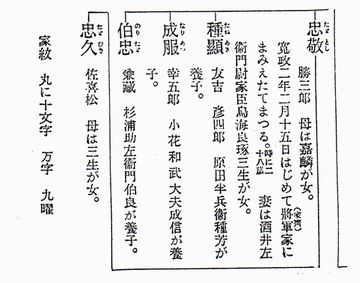 忠敬 たゞよし
勝三郎 母は嘉麟が女。
寛政二年二月十五日はじめて將軍家に(家齊)
まみえたてまつる。時に二十八歳 妻は酒井左
衞門尉家臣鳥海良琢三生が女。
種顯 たねあき
友吉 彦四郎 原田半兵衞種芳が
養子。
成服
幸五郎 小花和武大夫成信が養
子。
伯忠 のりたゞ
兼藏 杉浦助左衞門伯良が養子。
忠久 たゞひさ
佐喜松 母は三生が女。
家紋 丸に十文字 万字 九曜